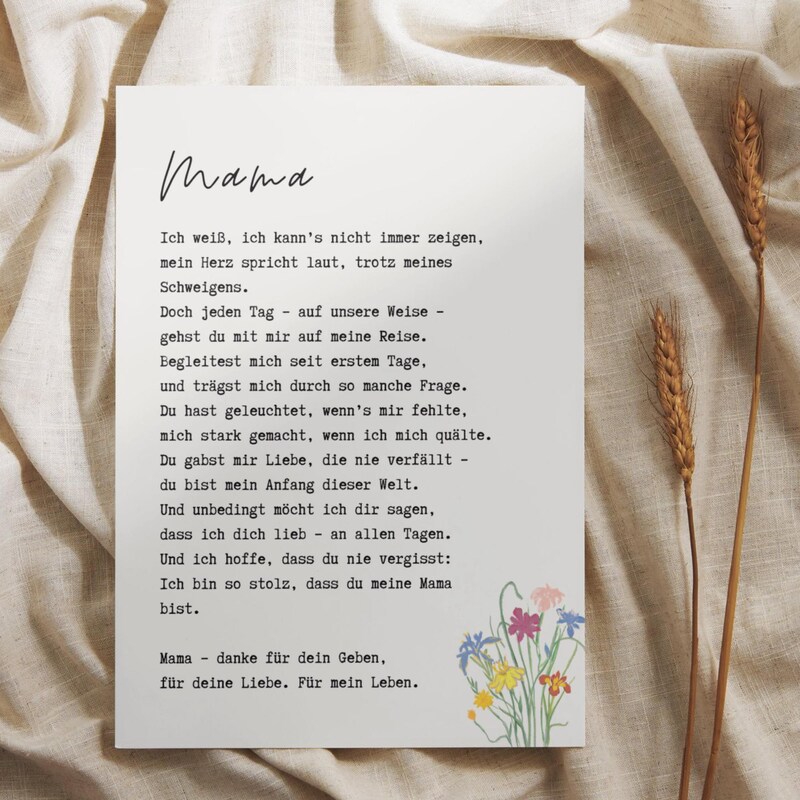 Mama
Ich weiß, ich kann's nicht immer zeigen,
mein Herz spricht laut, trotz meines
Schweigens.
Doch jeden Tag – auf unsere Weise –
gehst du mit mir auf meine Reise.
Begleitest mich seit erstem Tage,
und trägst mich durch so manche Frage.
Du hast geleuchtet, wenn's mir fehlte,
mich stark gemacht, wenn ich mich quälte.
Du gabst mir Liebe, die nie verfällt –
du bist mein Anfang dieser Welt.
Und unbedingt möcht ich dir sagen,
dass ich dich lieb – an allen Tagen.
Und ich hoffe, dass du nie vergisst:
Ich bin so stolz, dass du meine Mama
bist.
Mama – danke für dein Geben,
für deine Liebe. Für mein Leben.